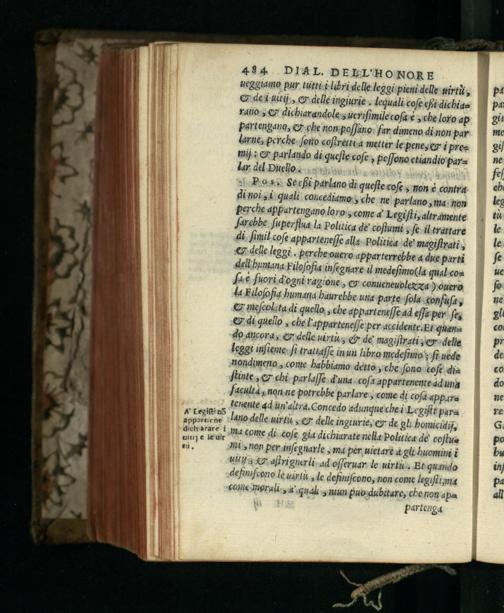 484 DIAL. DELL'HONORE
ueggiamo pur tutti i libri delle leggi pieni delle uirtù,
& de i uitij, & delle ingiurie, lequali cose essi dichia-
rano, & dichiarandole, uerisimile cosa è, che loro ap
partengano, & che non possano far dimeno di non par
larne, perche sono costretti a metter le pene, & i pre-
mij: & parlando di queste cose, possono etiandio par-
lar del Duello.
Pos. Se essi parlano di queste cose, non è contra
di noi, i quali concediamo, che ne parlano, ma non
perche appartengano loro, come a' Legisti, altramente
sarebbe superflua la Politica de' costumi, se il trattare
di simil cose appartenesse alla Politica de' magistrati,
& delle leggi. perche ouero apparterrebbe a due parti
dell'humana Filosofia insegnare il medesimo (la qual co-
sa è fuori d'ogni ragione, & conueneuolezza) ouero
la Filosofia humana haurebbe una parte sola confusa,
& mescolata di quello, che appartenesse ad essa per se,
& di quello, che l'appartenesse per accidente. Et quan-
do ancora, & delle uirtù, & de' magistrati, & delle
leggi insieme si trattasse in un libro medesimo; si uede
nondimeno, come habbiamo detto, che sono cose di-
stinte, & chi parlasse d'una cosa appartenente ad una
facultà, non ne potrebbe parlare, come di cosa appar-
tenente ad un'altra. Concedo adunque che i Legisti par-
lano delle uirtù, & delle ingiurie, & de gli homicidij,
ma come di cose già dichiarate nella Politica de' costu-
mi, non per insegnarle, ma per uietare a gli huomini i
uitij, & astrignerli ad osseruar le uirtù. Et quando
definiscono le uirtù, le definiscono, non come legisti, ma
come morali, a' quali, niun può dubitare, che non apa-
partenga
A' Legisti nō
appartiene
dichiarare i
uitij e le uir
tù.